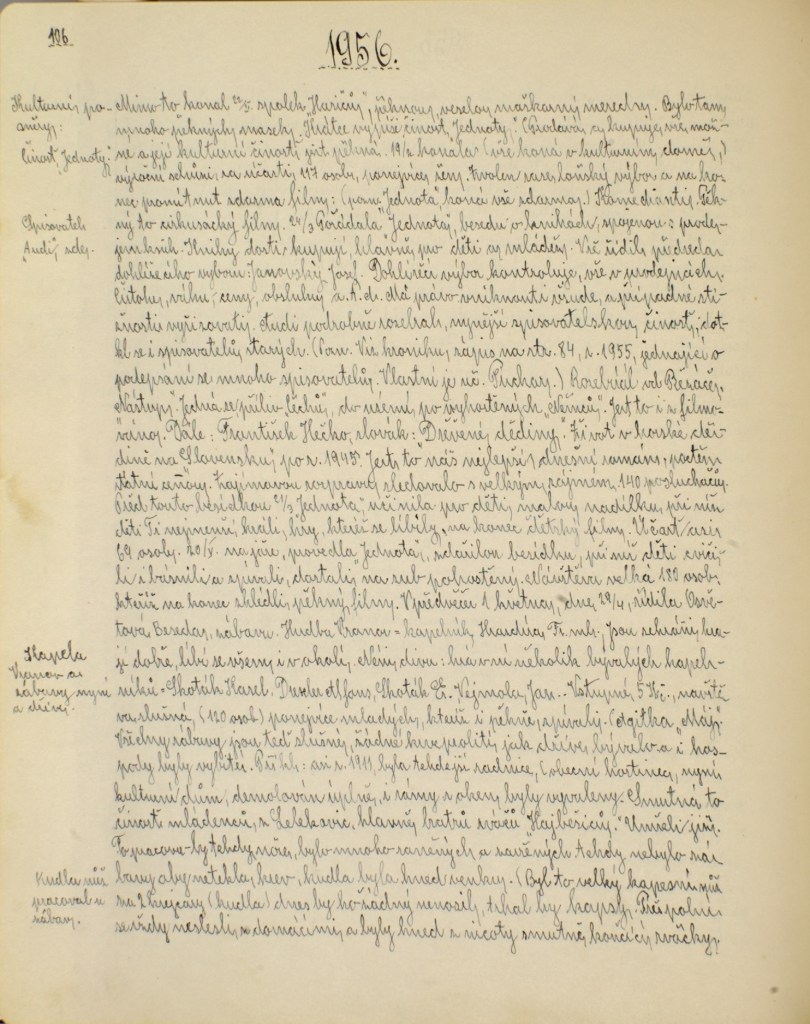 126
1956.
Kulturní po-
měry:
činost "Jednoty".
Spisovatel
"Audi" zdej.
Kapela
Vranov a
zábavy nyní
a dříve.
Kudla nůž
pracoval u
zábav.
Mimo to konal 22/I. spolek "Hasičů", pěknou, veselou maškarný merendu. Bylo tam
mnoho pěkných masek. Krátce vypíši činost "Jednoty." (Prodává a kupuje vše mož-
né a její kulturní činost jest pěkná. 19/2 konala (vše koná v kulturním domě,)
výroční schůzi za účasti 117 osob, ponejvíce ženy. Zvolen zase loňský výbor a na ko-
nec promítnut zdarma film: (pozn. Jednota koná vše zdarma.) Komedianti. Pěk-
ný to cirkusácký film. 24/3 Pořádala "Jednota", besedu o knihách, spojenou s prode-
jem knih. Knihy dosti kupují, hlavně pro děti a mládež. Vše řídil předseda
dohlížecího výboru: Janovský Josef. Dohlížecí výbor kontroluje, vše v prodejnách,
čistotu, váhu, ceny, obsluhu a. t. d. Má právo vniknouti všude, a případné stí-
žnosti vyřizovati. Audi podrobně rozebral, nynější spisovatelskou činost, dot-
kl se i spisovatelů starých. (Pozn. Viz kroniku, zápis na str. 84, r. 1955, jednající o
podepsání se mnoho spisovatelů. Vlastní je uč. Puchar.) Rozebírál od Řezáče,
"Nástup". Jedná se příliv Čechů, do území, po vyhostěných "Němců". Jest to i z filmo-
váno. Dále: František Hečko, slovák: Dřevená dědina". Život v horské dě-
dině na Slovensku, po r. 1945. Jest to náš nejlepší, dnešní román, poctěn
státní cenou. Zajímavou rozpravu, sledovalo s velkým zájmem, 140 posluchačů.
Před touto besídkou 21/3 Jednota, učinila pro děti, malou nadílku, při níž
děti Ti nejmenší, hráli, hry, které se líbily, na konec dětský film. Účast asi
69 osob. 20/5. na jaře, provedla Jednota, zdařilou besídku, při níž děti cviči-
li i básnili a zpívali, dostali, na sub pohoštění. Návštěva velká 180 osob,
kteříž na konec shlédli, pěkný film. V předvečer 1 května, dne 29/4, řídila Osvě-
tová Beseda, zábavu. Hudba Vranov = kapelník Fr. ml. Jsou sehráni, hra-
jí dobře, líbí se všem i v okolí. Není divu: hrá v ní několik bývalých kapel-
níků = Skoták Karel. Alfons, Skoták Vejmola, Jan.. Vstupné 5 Kč., návště-
va slušná, (120 osob) ponejvíce mladých, kteří i pěkně, zpívali. (agitka "Máj").
Všechny zábavy jsou teď slušné, žádné krve prolití, jak dříve, bývalo a i hos-
pody byly vybité. Příkl: asi r. 1911, byla tehdejší radnice, (obecní hostinec), nyní
kulturní dům, demolován úplně, i rámy s oken, byly vyvaleny. Smutná to
činost mládenců, z Lelekovic, hlavně bratrů "Hajbešiců". Umřeli již.
To pracova-ly tehdy nože, bylo mnoho raněných, a zavřených tehdy nebylo zá-
bavy aby netekla krev, kudla byla hned venku. (Byl to velký kapesní nůž
za 2 krejcary (kudla) dnes by ho žádný nenosil, trhal by kapsy. Přespolní
se vždy nesnesli, z domácími, a byly hned z nicoty smutně končící rvačky.